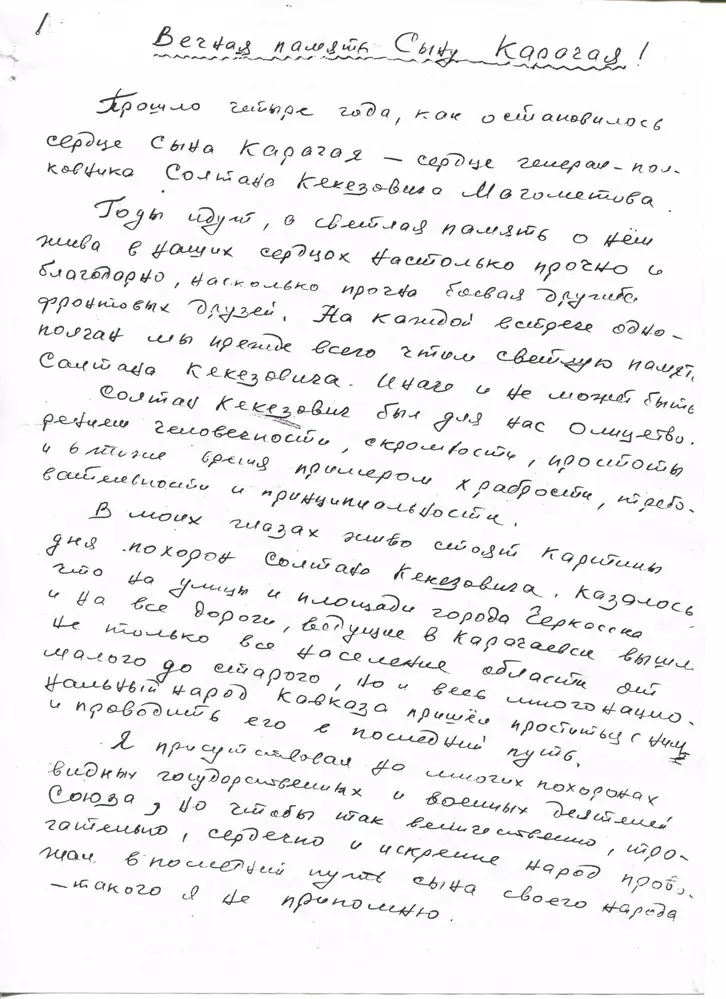 1
Вечная память Сыну Карачая!
Прошло четыре года, как остановилось
сердце Сына Карачая – сердце генерал-пол-
ковника Солтана Кекезовича Магометова.
Годы идут, а светлая память о нём
жива в наших сердцах настолько прочно и
благодарно, насколько прочна боевая дружба
фронтовых друзей. На каждой встрече одно-
полчан мы прежде всего чтим светлую память
Солтана Кекезовича. Иначе и не может быть
Солтан Кекезович был для нас олицетво-
рением человечности, скромности, простоты
и в тоже время примером храбрости, требо-
вательности и принципиальности.
В моих глазах живо стоят картины
дня похорон Солтана Кекезовича. Казалось,
что на улицы и площади города Черкесска
и на все дороги, ведущие в Карачаевск вышл
не только все население области от
малого до старого, но и весь многонацио-
нальный народ Кавказа пришёл проститься с ним
и проводить его в последний путь.
Я присутствовал на многих похоронах
видных государственных и военных деятелей
Союза, но чтобы так величественно, тро-
гательно, сердечно и искренне народ прово-
жал в последний путь сына своего народа
– такого я не припомню.